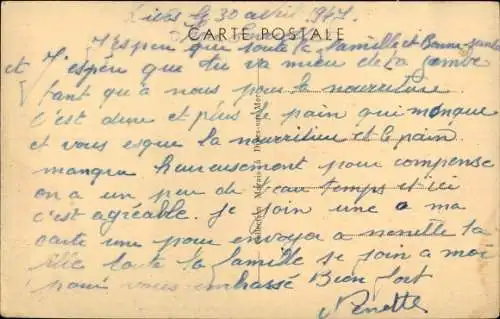 le 30 avril 1947.
CARTE POSTALE
J'espere que toute la famille et Bonne santé
et J'espère que tu va mieu de la Jambe
tant qu'a nous pour la nourriture
c'est dure et plus le pain qui manque
et vous esque la nourriture et le pain
manque heureusement pour compense
on a un peu de beau temps et ici
c'est agréable. je join une a ma
carte une pour envoyer a nenette la
fille toute la famille se join a moi
pour vous embrassé Bien fort
Nenette